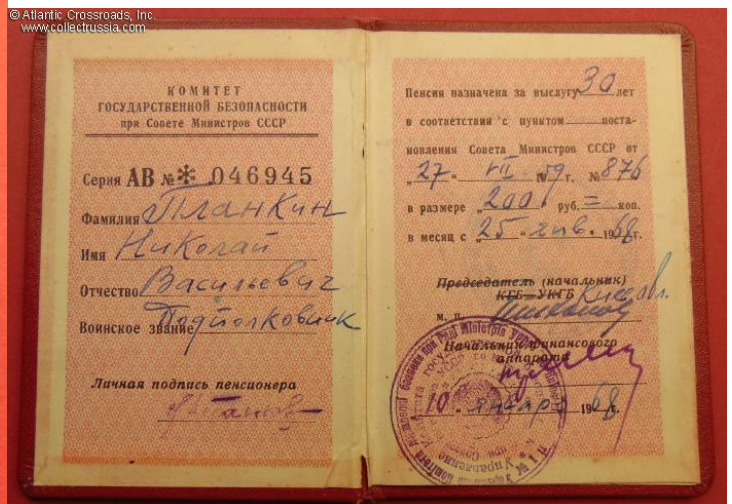 © Atlantic Crossroads, Inc.
www.collectrussia.com
КОМИТЕТ
ГОСУДАРСТВЕННОЙ БЕЗОПАСНОСТИ
при Совете Министров СССР
Серия АВ № * 046945
Фамилия Планкин
Имя Николай
Отчество Васильевич
Воинское звание Подполковник
Личная подпись пенсионера
Пенсия назначена за выслугу 30 лет
в соответствии с пунктом поста-
новления Совета Министров СССР от
„27" VII 1959 г. № 876
в размере „200" руб. = коп.
в месяц с „25" янв. 1968 г.
Председатель (начальник)
КГБ—УКГБ Киев обл.
М. П.
Начальник финансового
аппарата
10 января 1968 г.
Управление